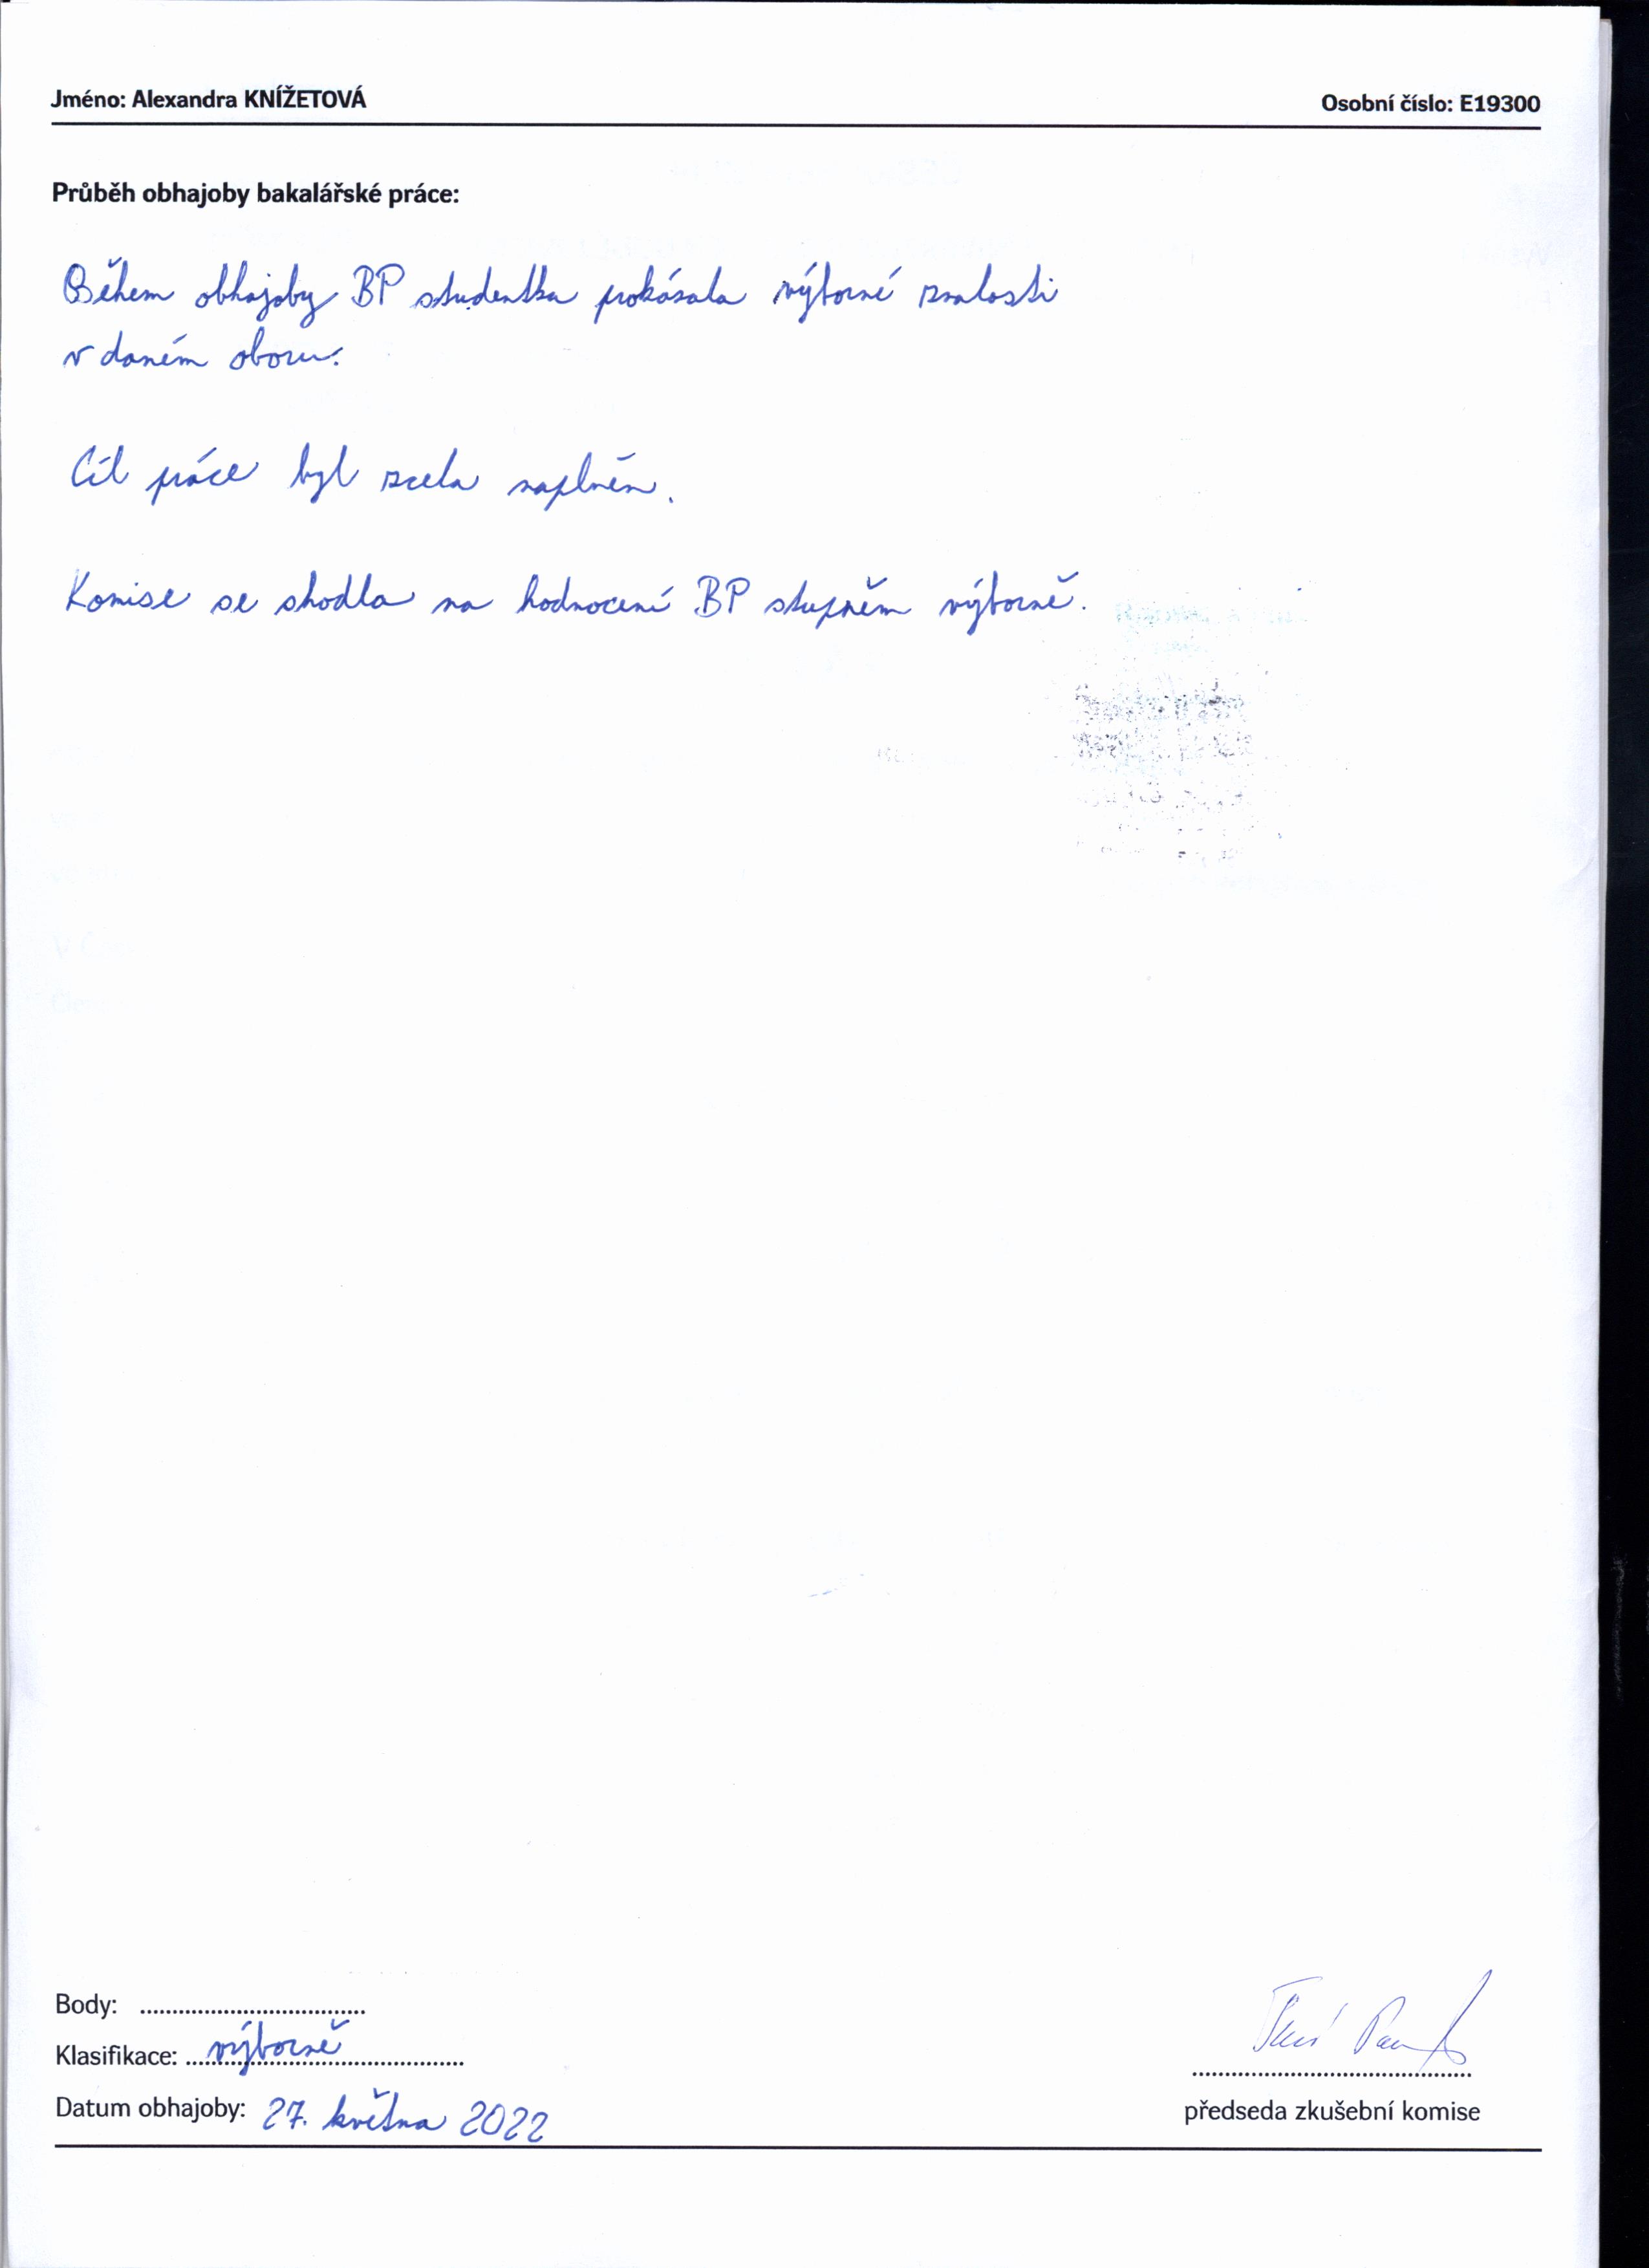 Jméno: Alexandra KNÍŽETOVÁ
Osobní číslo: E19300
Průběh obhajoby bakalářské práce:
Během obhajoby BP studentka prokázala výborné znalosti
v daném oboru.
Cíl práce byl zcela naplněn.
Komise se shodla na hodnocení BP stupněm výborně.
Body: ..................................
Klasifikace: výborně
Datum obhajoby: 27. května 2022
předseda zkušební komise